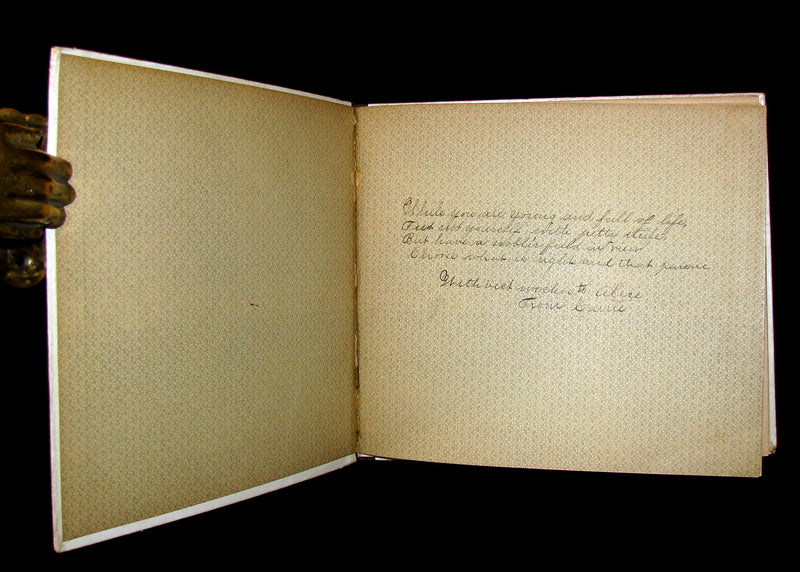 While you are young and full of life,
Fret not yourself with petty strife,
But have a nobler field in view
Choose what is right and that pursue
With best wishes to Alice
From Carrie